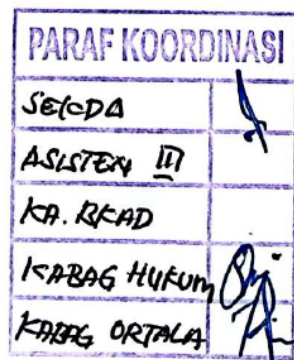 PARAF KOORDINASI
SEKDA
ASISTEN III
KA. BKAD
KABAG HUKUM
KABAG ORTALA